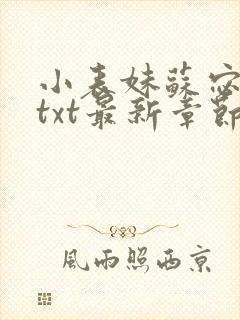 小表妹蘇宓
txt最新章節
風雨照西京